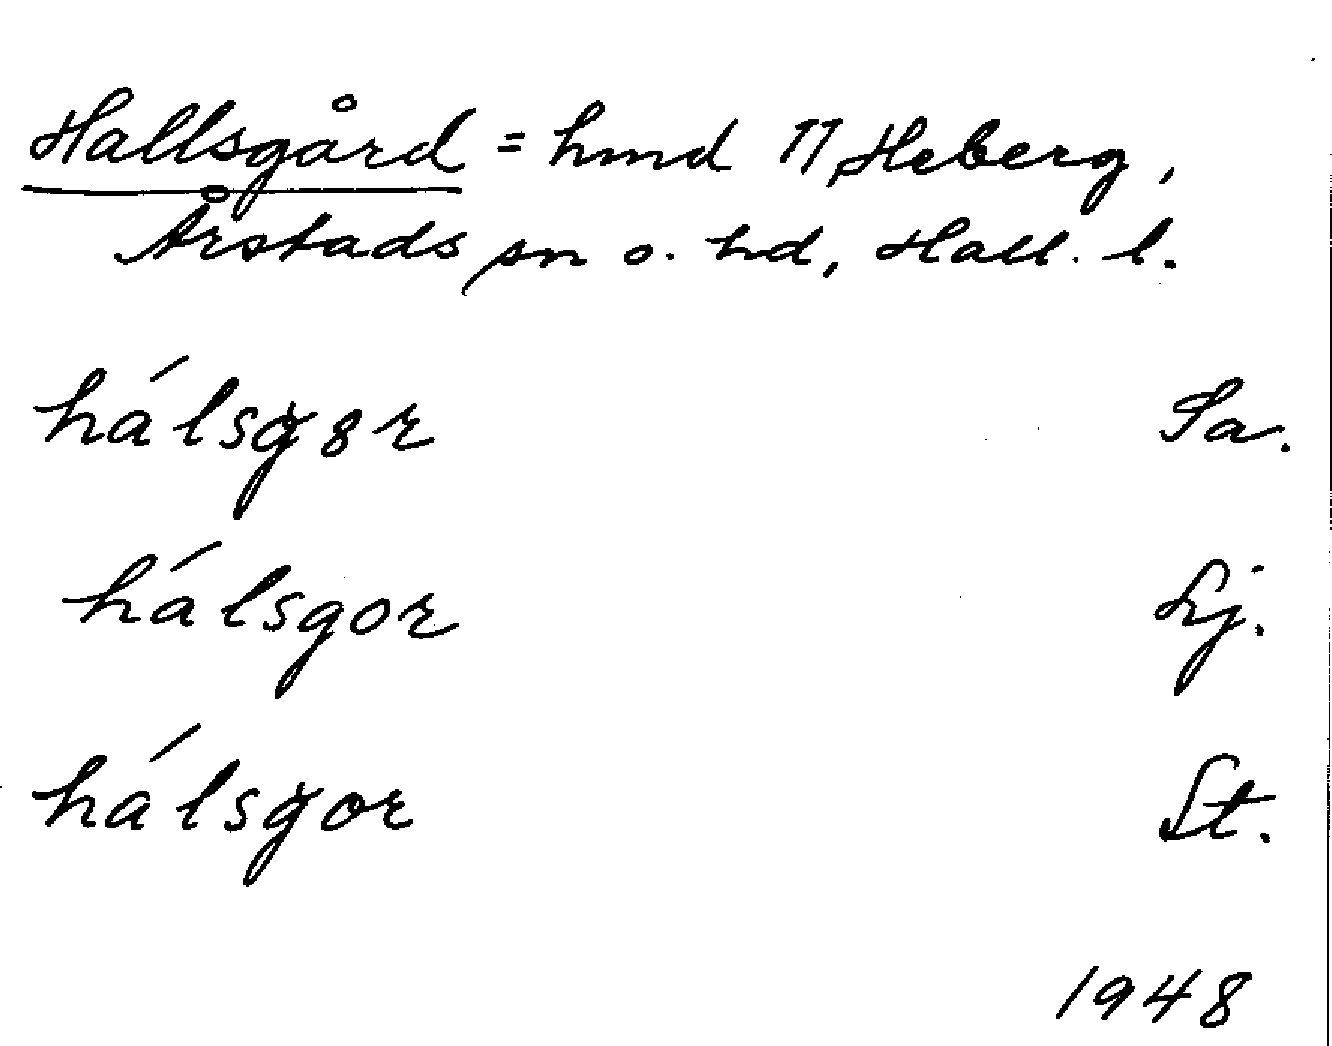 Hallsgård = hmd 11 Heberg,
Årstads sn o. hd, Hall. l.
hálsg8r Sa.
hálsgor Lj.
hálsgor St.
1948